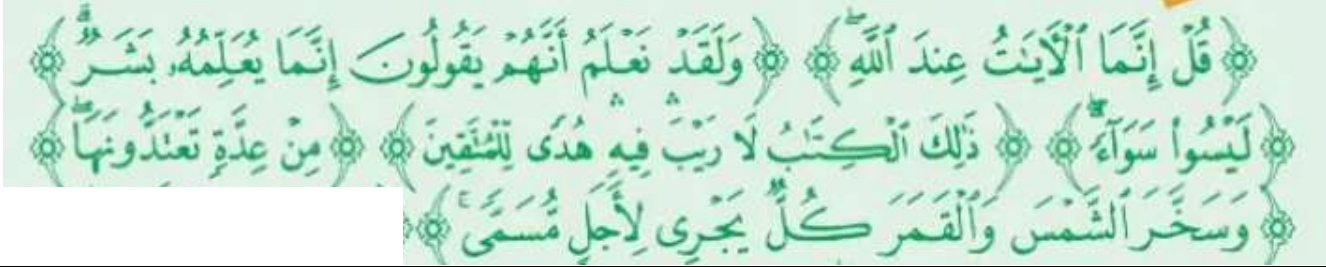 ﴿قُلْ إِنَّمَا ٱلْأٓيَٰتُ عِندَ ٱللَّهِۖ﴾ ﴿وَلَقَدْ نَعْلَمُ أَنَّهُمْ يَقُولُونَ إِنَّمَا يُعَلِّمُهُۥ بَشَرٌۗ﴾
﴿لَيْسُوا۟ سَوَآءًۗ﴾ ﴿ذَٰلِكَ ٱلْكِتَٰبُ لَا رَيْبَۛ فِيهِۛ هُدًى لِّلْمُتَّقِينَ﴾ ﴿مِنْ عِدَّةٍ تَعْتَدُّونَهَاۖ﴾
﴿وَسَخَّرَ ٱلشَّمْسَ وَٱلْقَمَرَ كُلٌّ يَجْرِى لِأَجَلٍ مُّسَمًّىۚ﴾